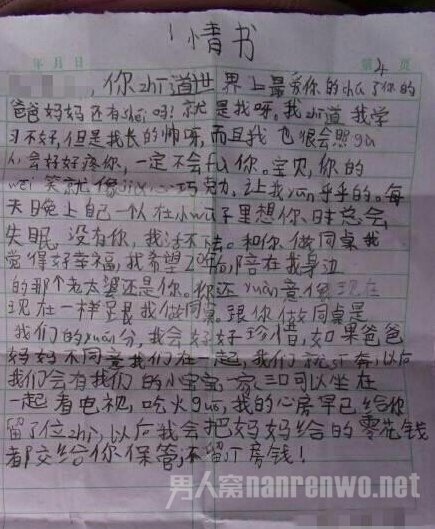 情书
年 月 日 第4页
，你zhī道世界上最爱你的chú了你的
爸爸妈妈还有shéi吗？就是我呀。我zhī道我学
习不好，但是我长的帅呀，而且我也很会照gù
人会好好疼你，一定不会fù你。宝贝，你的
wēi笑就像巧克力，让我yūn乎乎的。每
天晚上自己一个人在小wū子里想你时总会
失眠，没有你，我活不下去。和你做同桌我
觉得好幸福，我希望20年后陪在我身边
的那个老太婆还是你。你还yuàn意像现在
现在一样是跟我做同桌。跟你做同桌是
我们的yuán分，我会好好珍惜，如果爸爸
妈妈不同意我们在一起，我们就sī奔，以后
我们会有我们的小宝宝一家三口可以坐在
一起看电视，吃火guō，我的心房早已给你
留了位zhì，以后我会把妈妈给的零花钱
都交给你保管，不留一房钱！
男人窝nanrenwo.net